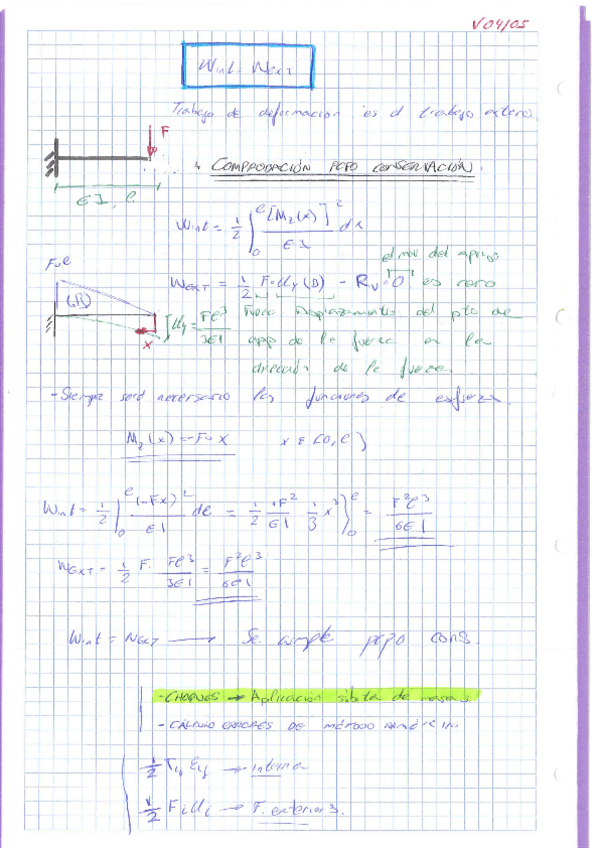 V 04/05
Wint = WEXT
Trabajo de deformación es el trabajo externo.
F
↳ COMPROBACIÓN PCPO CONSERVACIÓN.
EI, l
Wint = 1/2 ∫₀^l [Mz(x)]²/EI dx
el mov del apoyo
F·l
WEXT = 1/2 F·Uy(B) - RV·0 es cero
(B)
Uy = Fl³/3EI
Fuerza Desplazamiento del pto de
app de la fuerza en la
x
dirección de la fuerza
- Siempre será necesario las funciones de esfuerzo.
Mz(x) = -F·x x ∈ [0, l)
Wint = 1/2 ∫₀^l (-Fx)²/EI dl = 1/2 F²/EI 1/3 x³]₀^l = F²l³/6EI
WEXT = 1/2 F· Fl³/3EI = F²l³/6EI
Wint = WEXT → Se cumple pcpo cons.
- CHOQUES → Aplicación súbita de masas.
- CÁLCULO ERRORES DE MÉTODO NUMÉRICO
1/2 Tij Eij → interna
1/2 Fi Ui → F. exteriores.